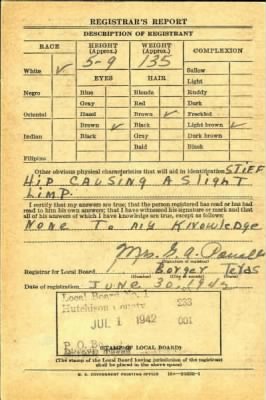 REGISTRAR'S REPORT
DESCRIPTION OF REGISTRANT
RACE HEIGHT (Approx.) WEIGHT (Approx.) COMPLEXION
5-9 135
White ✓ Sallow
EYES HAIR Light
Negro Blue Blonde Ruddy
Gray Red Dark
Oriental Hazel Brown ✓ Freckled
Brown ✓ Black Light brown ✓
Indian Black Gray Dark brown
Bald Black
Filipino
Other obvious physical characteristics that will aid in identification STIEF
HIP CAUSING A SLIGHT
LIMP.
I certify that my answers are true; that the person registered has read or has had
read to him his own answers; that I have witnessed his signature or mark and that
all of his answers of which I have knowledge are true, except as follows:
NONE TO MY KNOWLEDGE
Mrs.
(Signature of registrar)
Registrar for Local Board Borger Texas
(Number) (City or county) (State)
Date of registration JUNE 30, 1942
Local Board No. 1 233
Hutchison County
JUL 1 1942 001
P. O.
(STAMP OF LOCAL BOARD)
(The stamp of the Local Board having jurisdiction of the registrant
shall be placed in the above space)
U. S. GOVERNMENT PRINTING OFFICE